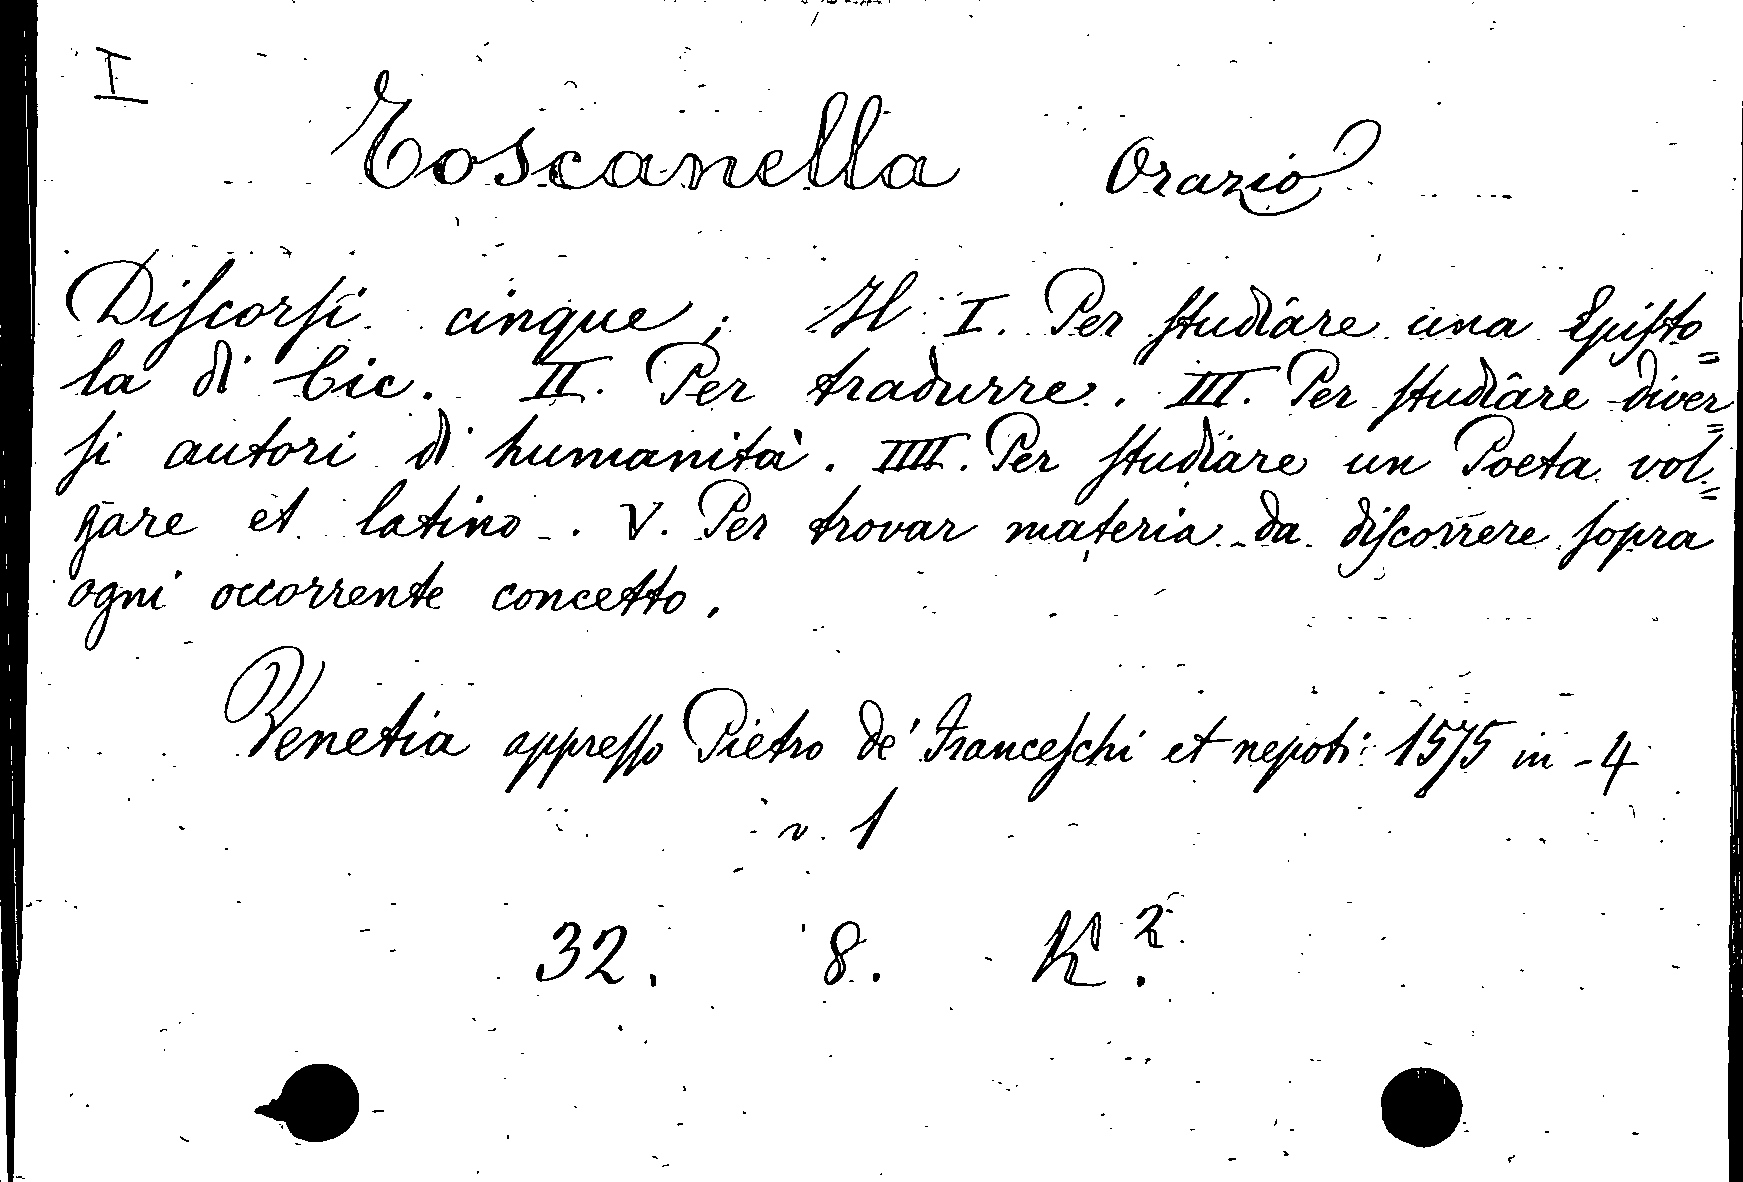 I
Toscanella Orazio
Diſcorſi cinque; Il I. Per ſtudiare una Epiſto=
la di Cic. II. Per tradurre. III. Per ſtudiare diver=
ſi autori di humanità. IIII. Per ſtudiare un Poeta vol=
gare et latino. V. Per trovar materia da diſcorrere ſopra
ogni occorrente concetto.
Venetia appreſſo Pietro de' Franceſchi et nepoti 1575 in-4
v. 1
32. 8. K².